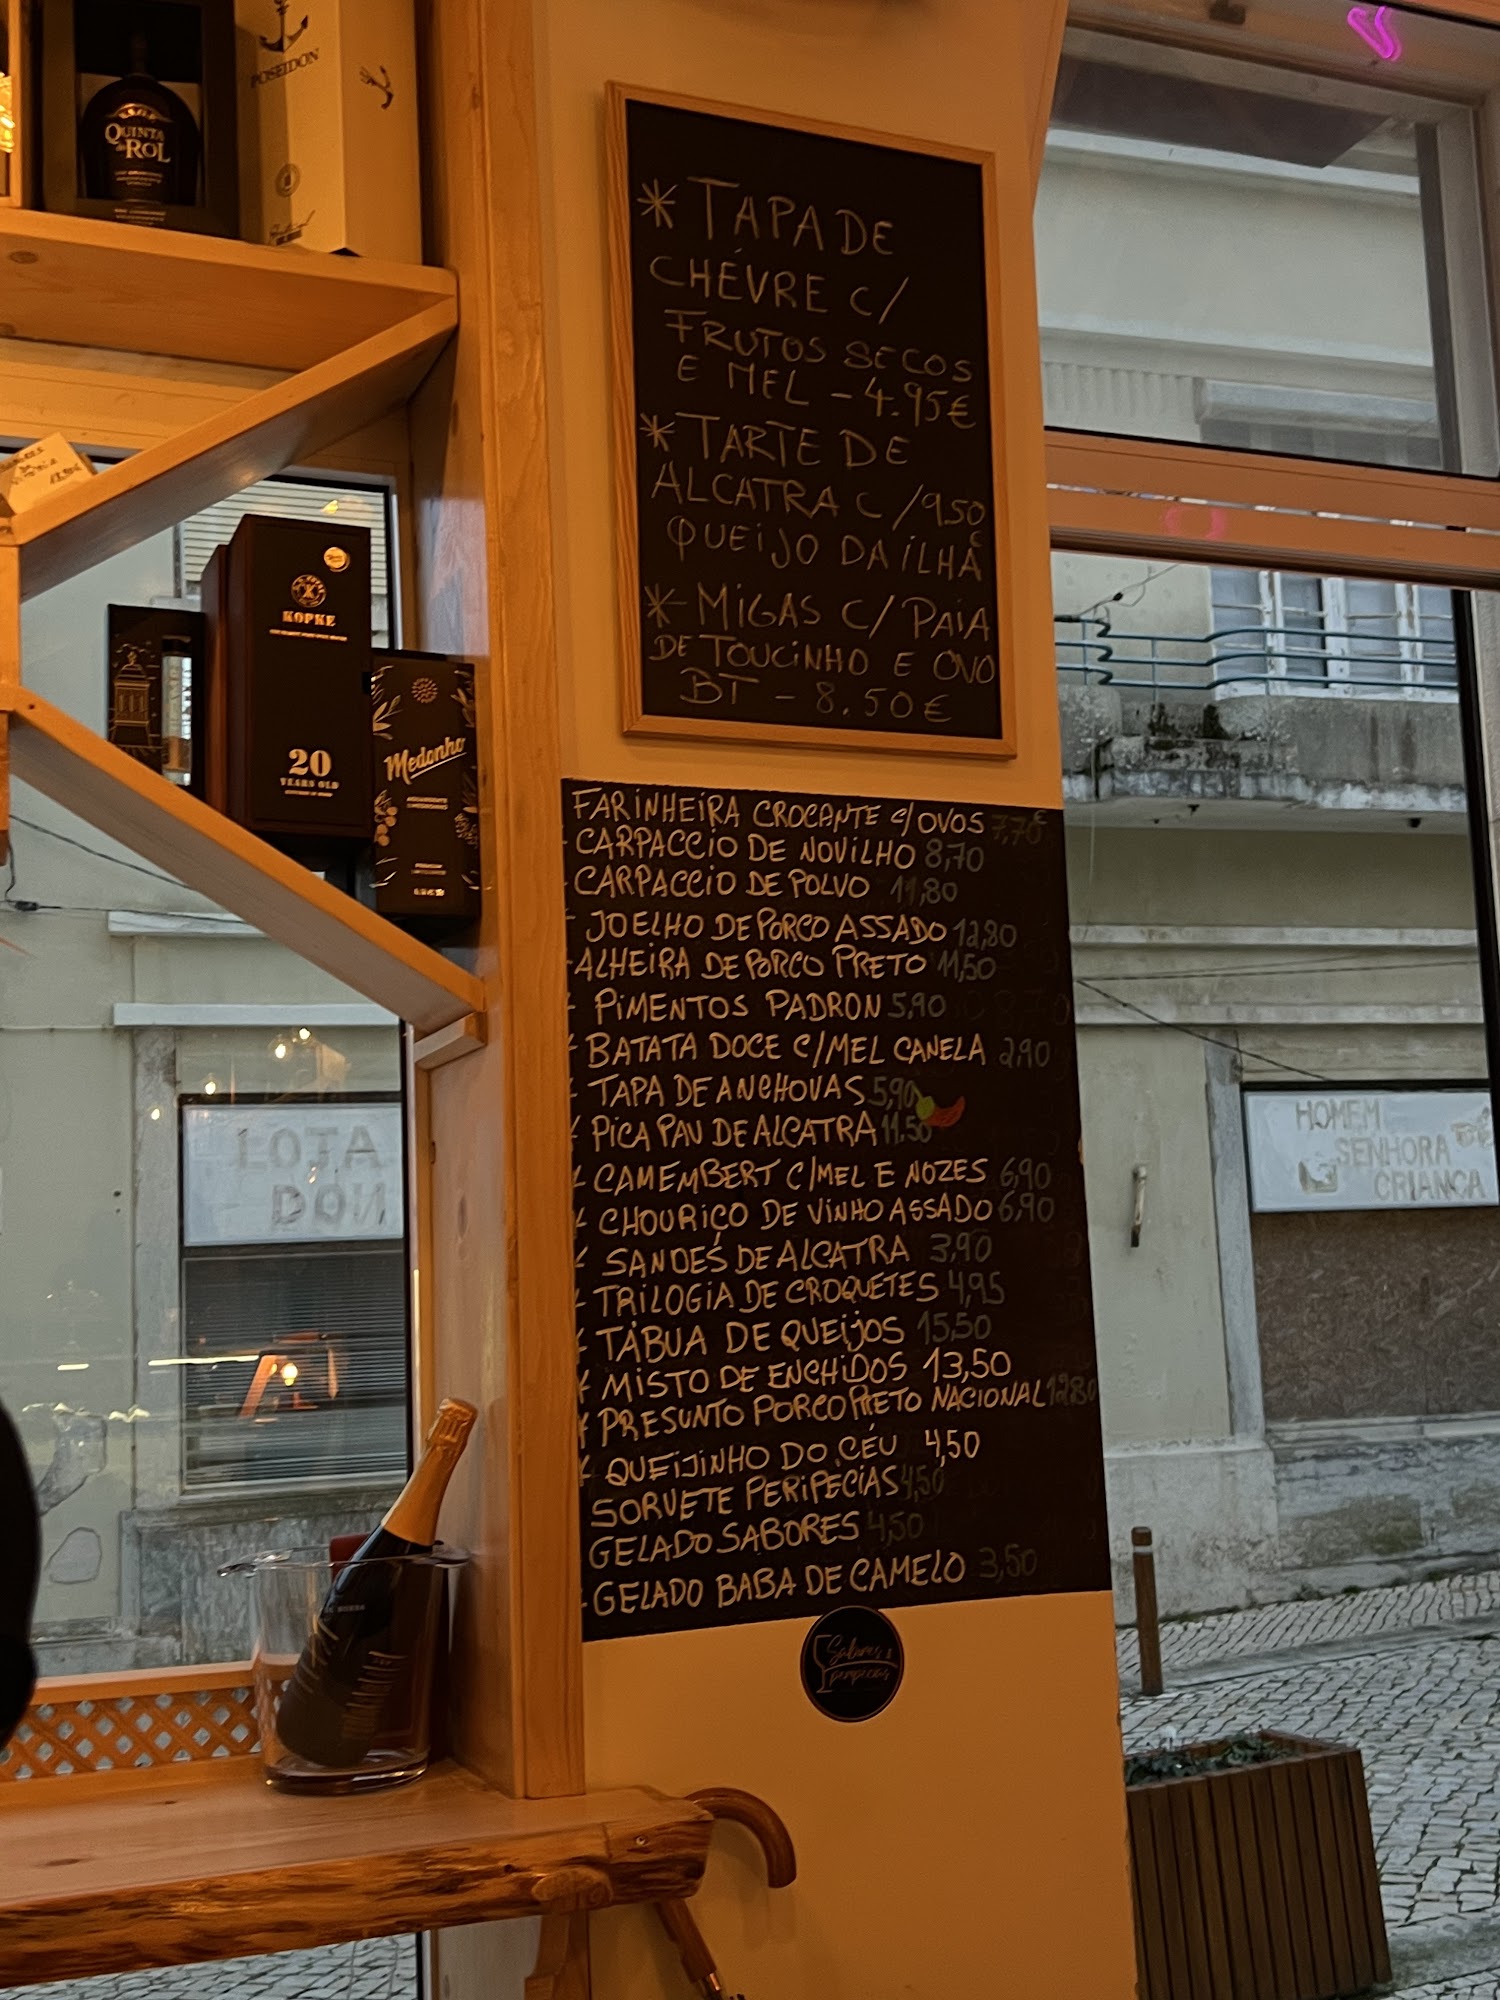 POSEIDON
QUINTA
do ROL
KOPKE
20
YEARS OLD
Medonho
* TAPA DE
CHÉVRE C/
FRUTOS SECOS
E MEL - 4.95€
* TARTE DE
ALCATRA C/ 9.50
QUEIJO DA ILHA €
* MIGAS C/ PAIA
DE TOUCINHO E OVO
BT - 8.50€
FARINHEIRA CROCANTE C/ OVOS 7,70€
CARPACCIO DE NOVILHO 8,70
CARPACCIO DE POLVO 11,80
JOELHO DE PORCO ASSADO 12,80
ALHEIRA DE PORCO PRETO 11,50
PIMENTOS PADRON 5,90
BATATA DOCE C/MEL CANELA 2,90
TAPA DE ANCHOVAS 5,90
PICA PAU DE ALCATRA 11.50
CAMEMBERT C/MEL E NOZES 6,90
CHOURIÇO DE VINHO ASSADO 6,90
SANDES DE ALCATRA 3,90
TRILOGIA DE CROQUETES 4,95
TÁBUA DE QUEIJOS 15,50
MISTO DE ENCHIDOS 13,50
PRESUNTO PORCO PRETO NACIONAL 12,80
QUEIJINHO DO CÉU 4,50
SORVETE PERIPÉCIAS 4,50
GELADO SABORES 4,50
GELADO BABA DE CAMELO 3,50
LOJA
DON
HOMEM
SENHORA
CRIANÇA